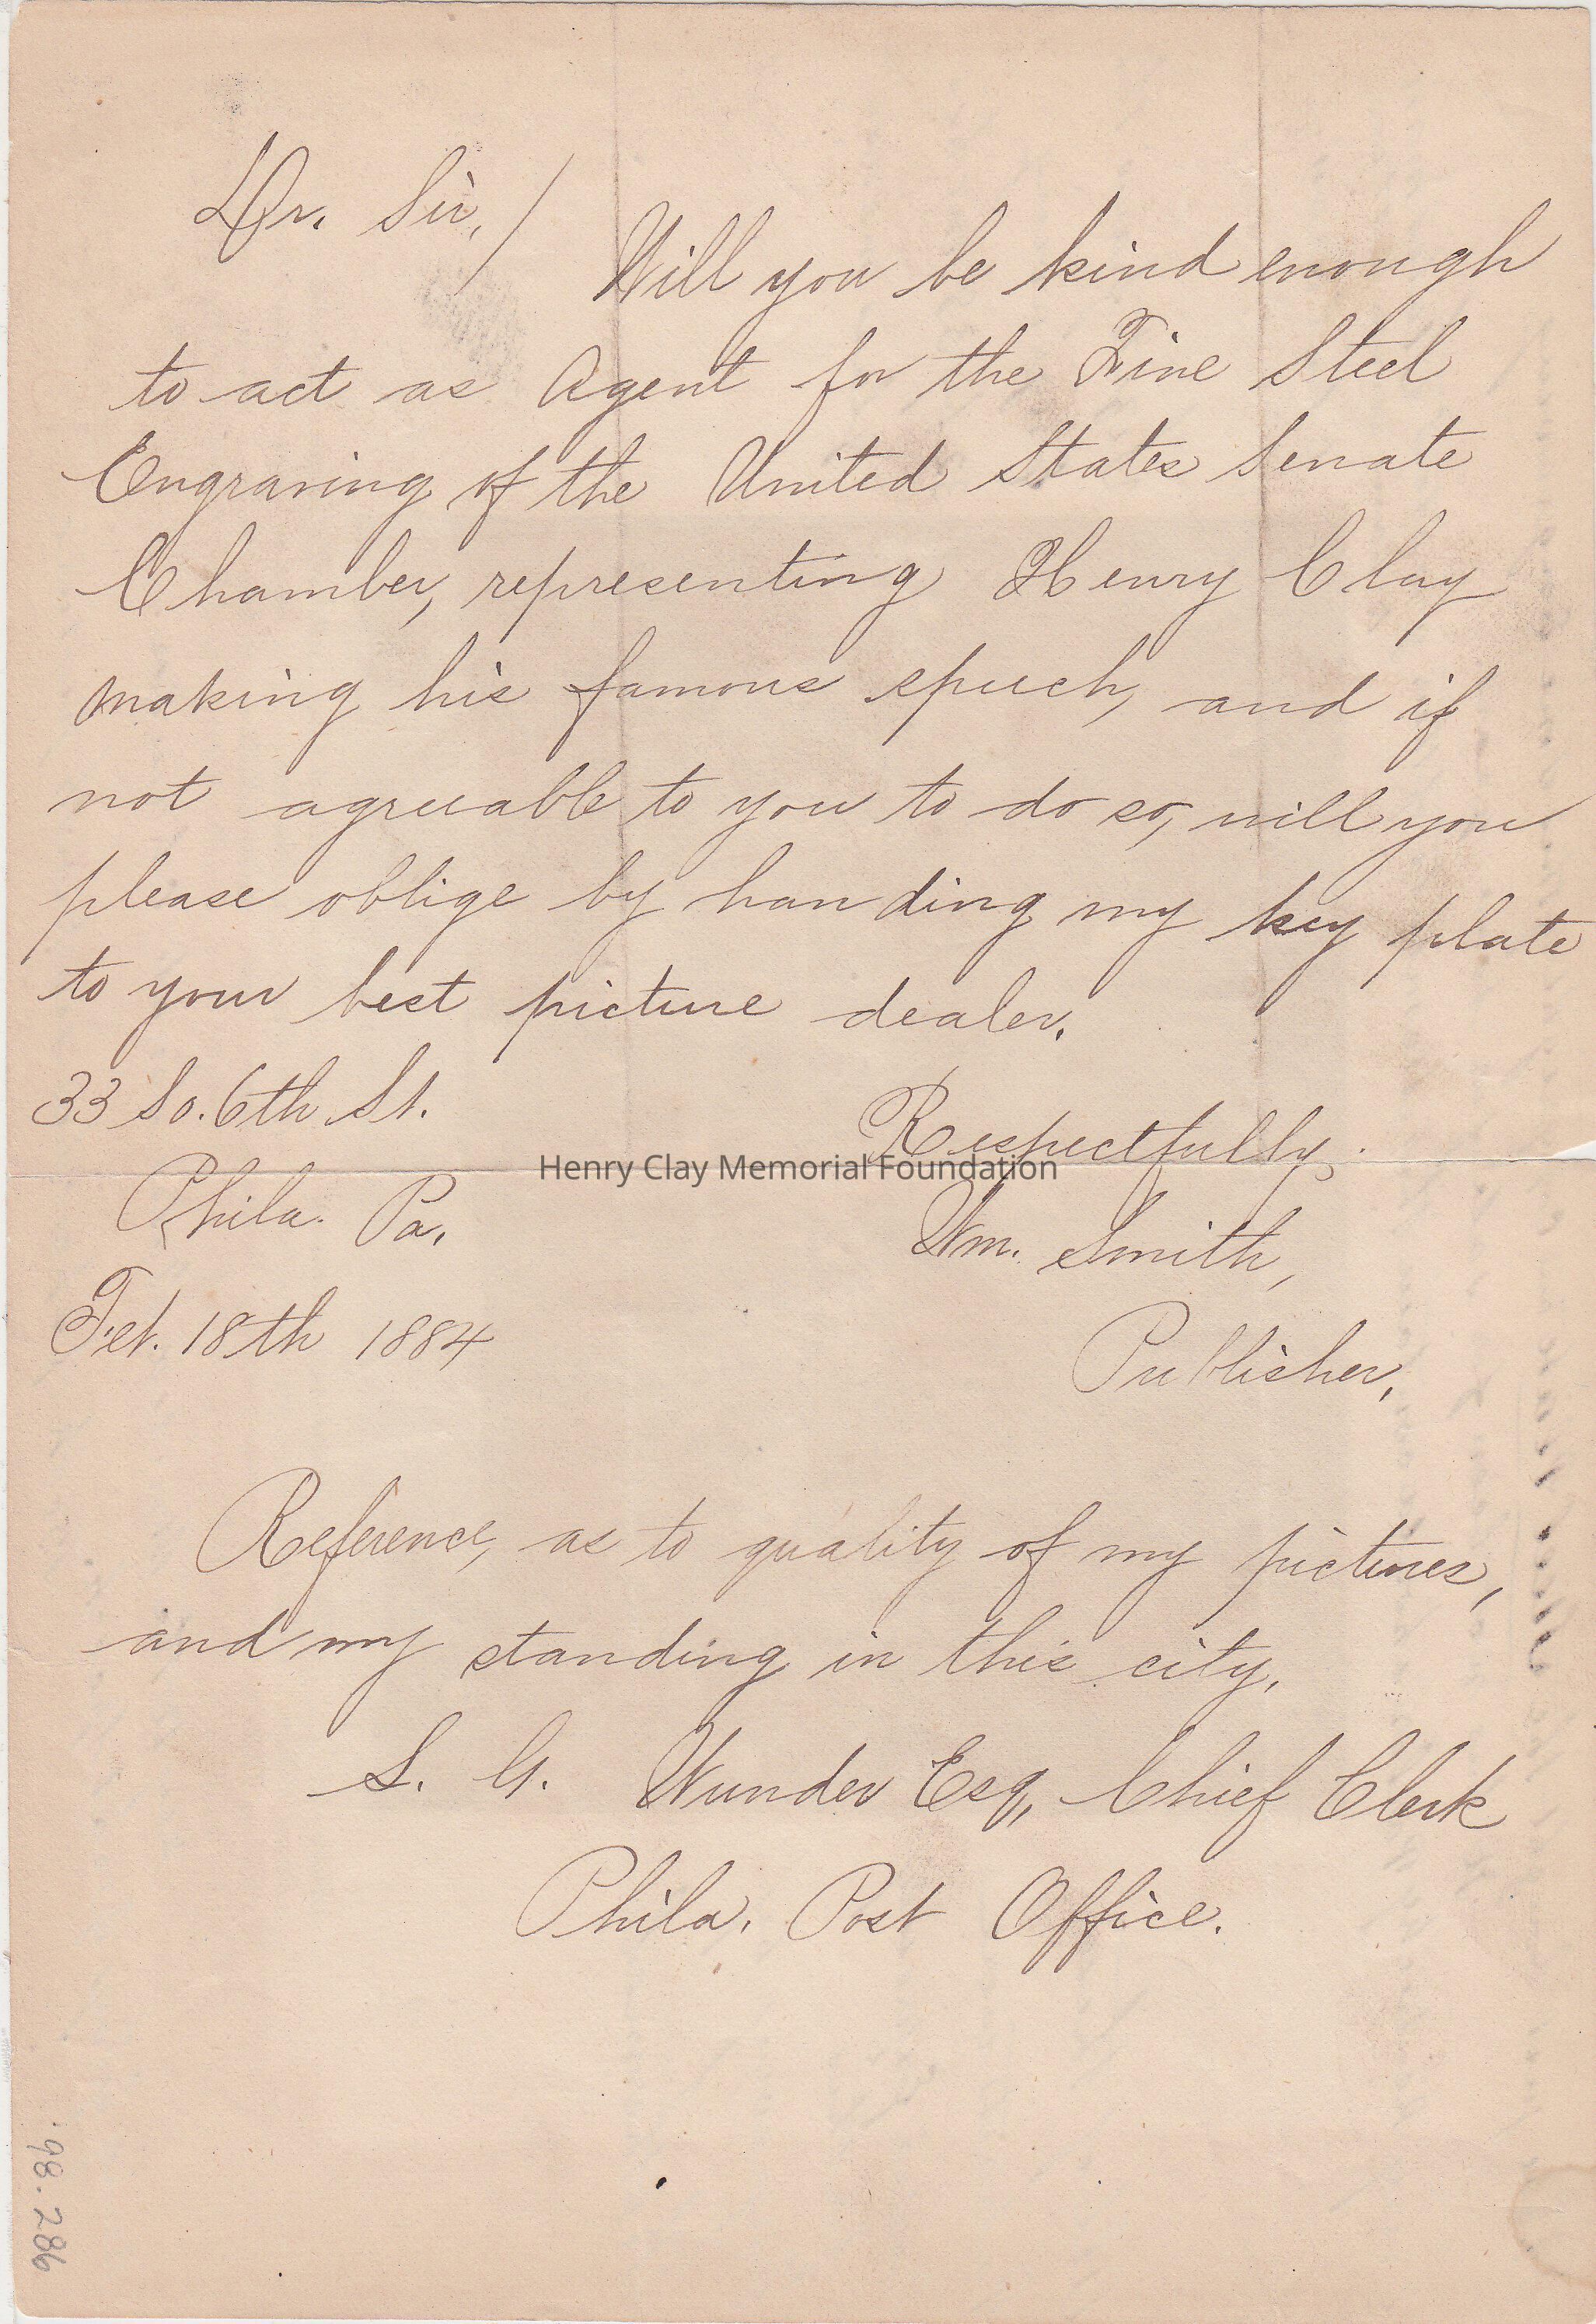 Dr. Sir,/
Will you be kind enough
to act as Agent for the Fine Steel
Engraving of the United States Senate
Chamber, representing Henry Clay
making his famous speech, and if
not agreeable to you to do so, will you
please oblige by handing my key plate
to your best picture dealer.
33 So. 6th St.
Respectfully,
Henry Clay Memorial Foundation
Phila. Pa.
Wm. Smith,
Feb. 18th 1884
Publisher,
Reference, as to quality of my pictures,
and my standing in this city.
S. G. Wunder Esq, Chief Clerk
Phila. Post Office.
98.286